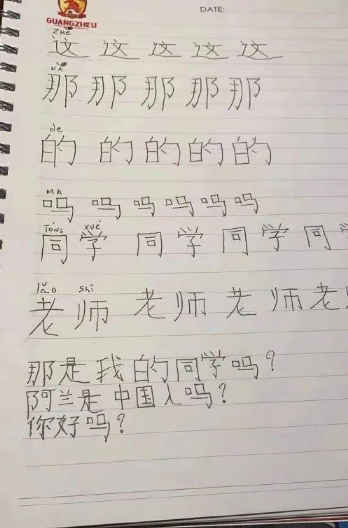 DATE:
GUANGZHOU
ZHE
这 这 这 这 这
NA
那 那 那 那 那
de
的 的 的 的 的
MA
吗 吗 吗 吗 吗 吗
tóng xué
同 学 同 学 同 学 同
lǎo shī
老 师 老 师 老 师 老
那是我的同学吗?
阿兰是中国人吗?
你好吗?